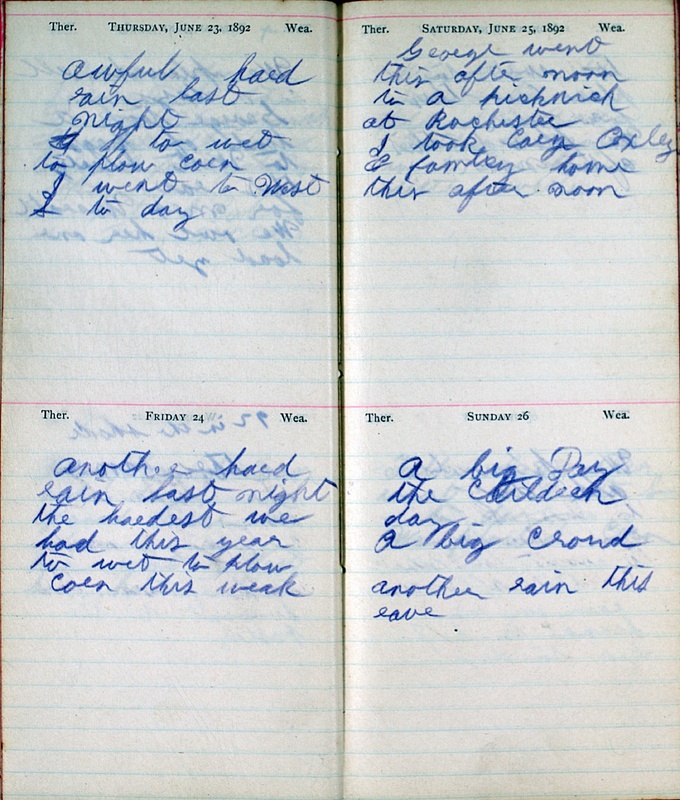 Ther. THURSDAY, JUNE 23, 1892 Wea.
awful hard
rain last
night
to wet
to plow corn
I went to West
to day
Ther. FRIDAY 24 Wea.
another hard
rain last night
the hardest we
had this year
to wet to plow
corn this weak
Ther. SATURDAY, JUNE 25, 1892 Wea.
George went
this after noon
to a picknick
at Rochester
I took Coxley
& family home
this after noon
Ther. SUNDAY 26 Wea.
A big Day
the Childern
day
A big Croud
another rain this
eave